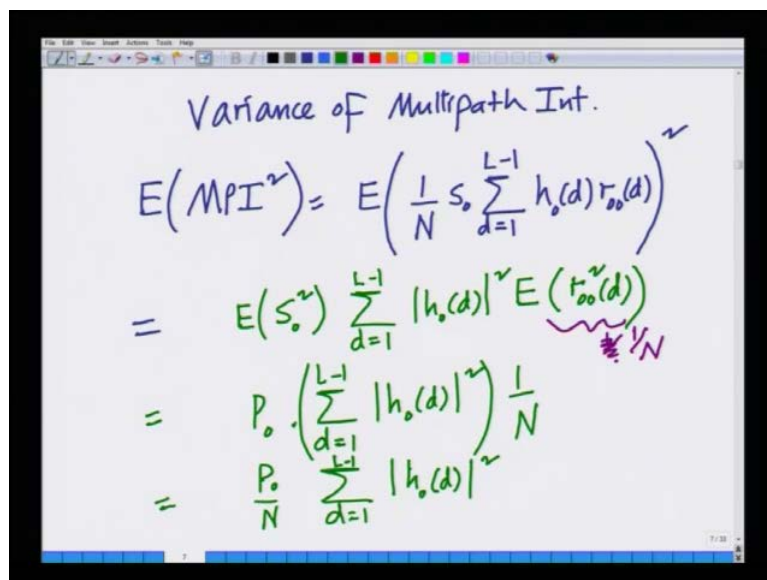 File Edit View Insert Actions Tools Help
Variance of Multipath Int.
E(MPI²) = E(1/N s₀ ∑_{d=1}^{L-1} h₀(d) r₀₀(d))²
= E(S₀²) ∑_{d=1}^{L-1} |h₀(d)|² E(r₀₀²(d))
1/N
= P₀ . (∑_{d=1}^{L-1} |h₀(d)|²) 1/N
= P₀/N ∑_{d=1}^{L-1} |h₀(d)|²
7